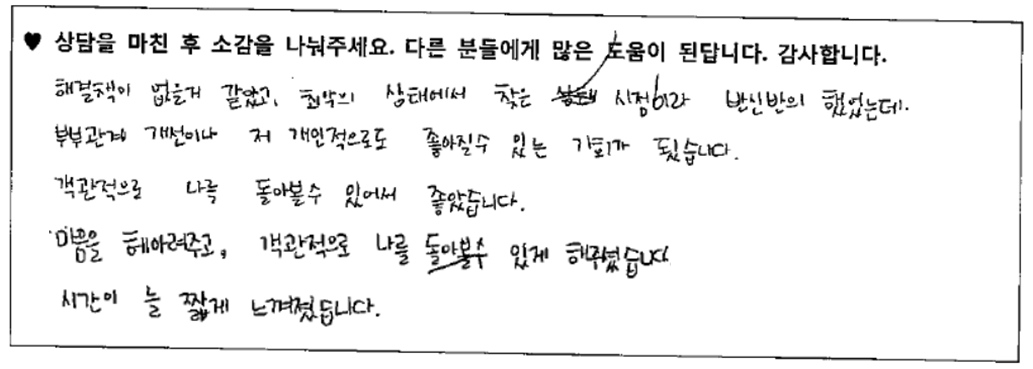 ♥ 상담을 마친 후 소감을 나눠주세요. 다른 분들에게 많은 도움이 된답니다. 감사합니다.
해결책이 없을거 같았고, 최악의 상태에서 찾은 상태 시점이라 반신반의 했었는데.
부부관계 개선이나 저 개인적으로도 좋아질수 있는 기회가 됐습니다.
객관적으로 나를 돌아볼수 있어서 좋았습니다.
마음을 헤아려주고, 객관적으로 나를 돌아볼수 있게 해주셨습니다
시간이 늘 짧게 느껴졌습니다.